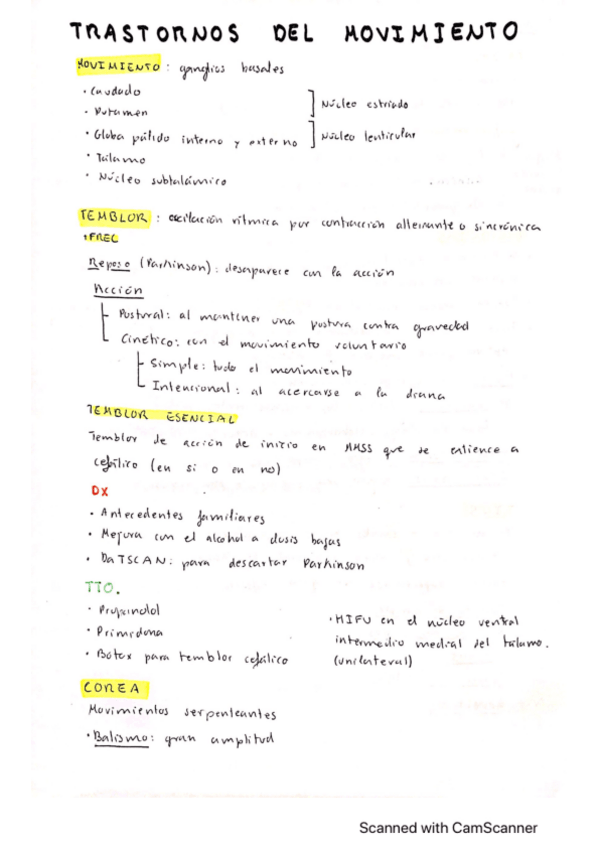 TRASTORNOS DEL MOVIMIENTO
MOVIMIENTO: ganglios basales
· Caudado
· Putamen
] Núcleo estriado
· Globo pálido interno y externo ] Núcleo lenticular
· Tálamo
· Núcleo subtalámico
TEMBLOR: oscilación rítmica por contracción alternante o sincrónica
+FREC
Reposo (Parkinson): desaparece con la acción
Acción
Postural: al mantener una postura contra gravedad
Cinético: con el movimiento voluntario
Simple: todo el movimiento
Intencional: al acercarse a la diana
TEMBLOR ESENCIAL
Temblor de acción de inicio en MMSS que se extiende a
cefálico (en si o en no)
DX
· Antecedentes familiares
· Mejora con el alcohol a dosis bajas
· DaTSCAN: para descartar Parkinson
TTO.
· Propanolol
· Primidona
· Botox para temblor cefálico
· HIFU en el núcleo ventral
intermedio medial del tálamo.
(unilateral)
COREA
Movimientos serpenteantes
· Balismo: gran amplitud
Scanned with CamScanner